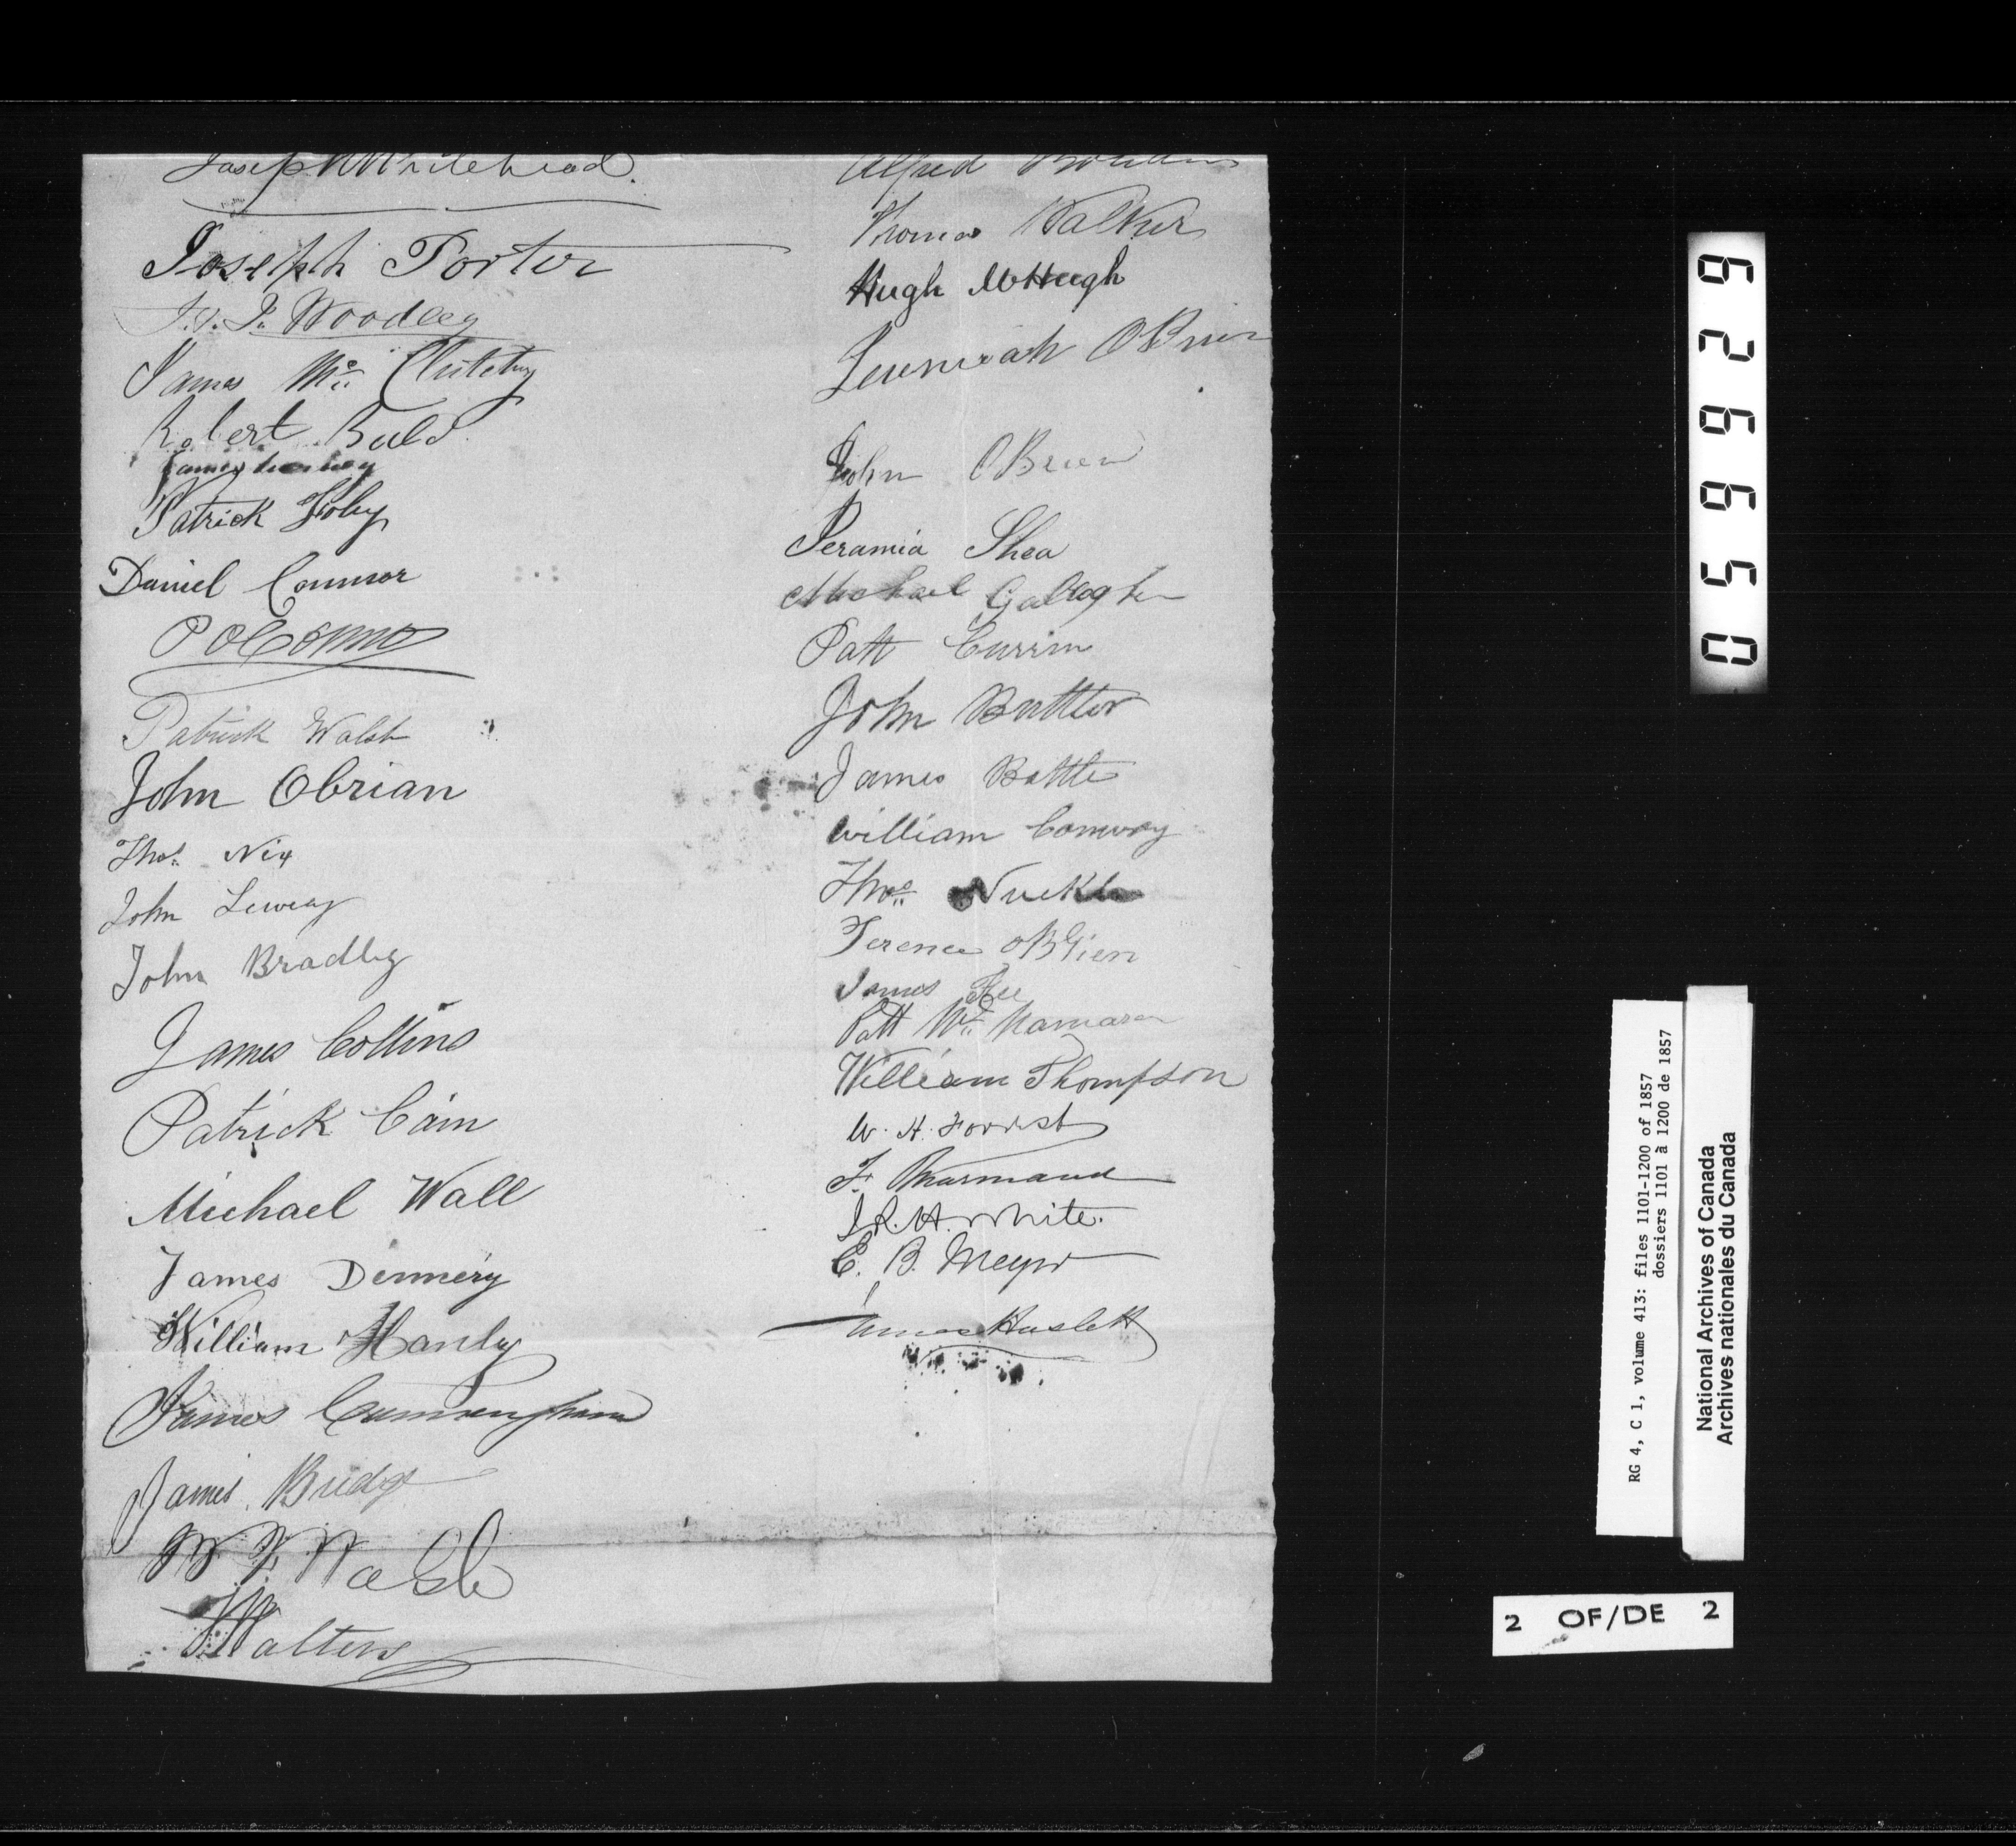 Joseph Whitehead.
Joseph Porter
Woodley
James Mc
Robert
James
Patrick Foley
Daniel Connor
P OConnor
Patrick Walsh
John Obrian
Thos. Nix
John
John Bradley
James Collins
Patrick Cain
Michael Wall
James Dennery
William Hanly
James Cunningham
James Bridge
Nash
Walters
Alfred
Thomas Walker
Hugh McHugh
Jeremiah OBrien
John OBrien
Jeramia Shea
Michael Gallagher
Patt Currin
John Buttler
James Battle
William Conway
Thos.
Terence OBrien
James Fee
Patt Mc Namara
William Thompson
W. H. Forrest
F.
J. R. H. White.
E. B. Meyer
James Haslett
056629
RG 4, C 1, volume 413: files 1101-1200 of 1857
dossiers 1101 à 1200 de 1857
National Archives of Canada
Archives nationales du Canada
2 OF/DE 2